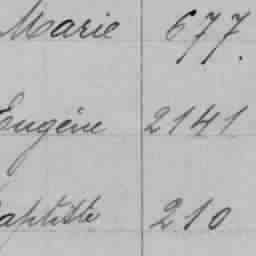 Marie 677.
Eugène 2141
aptiste 210